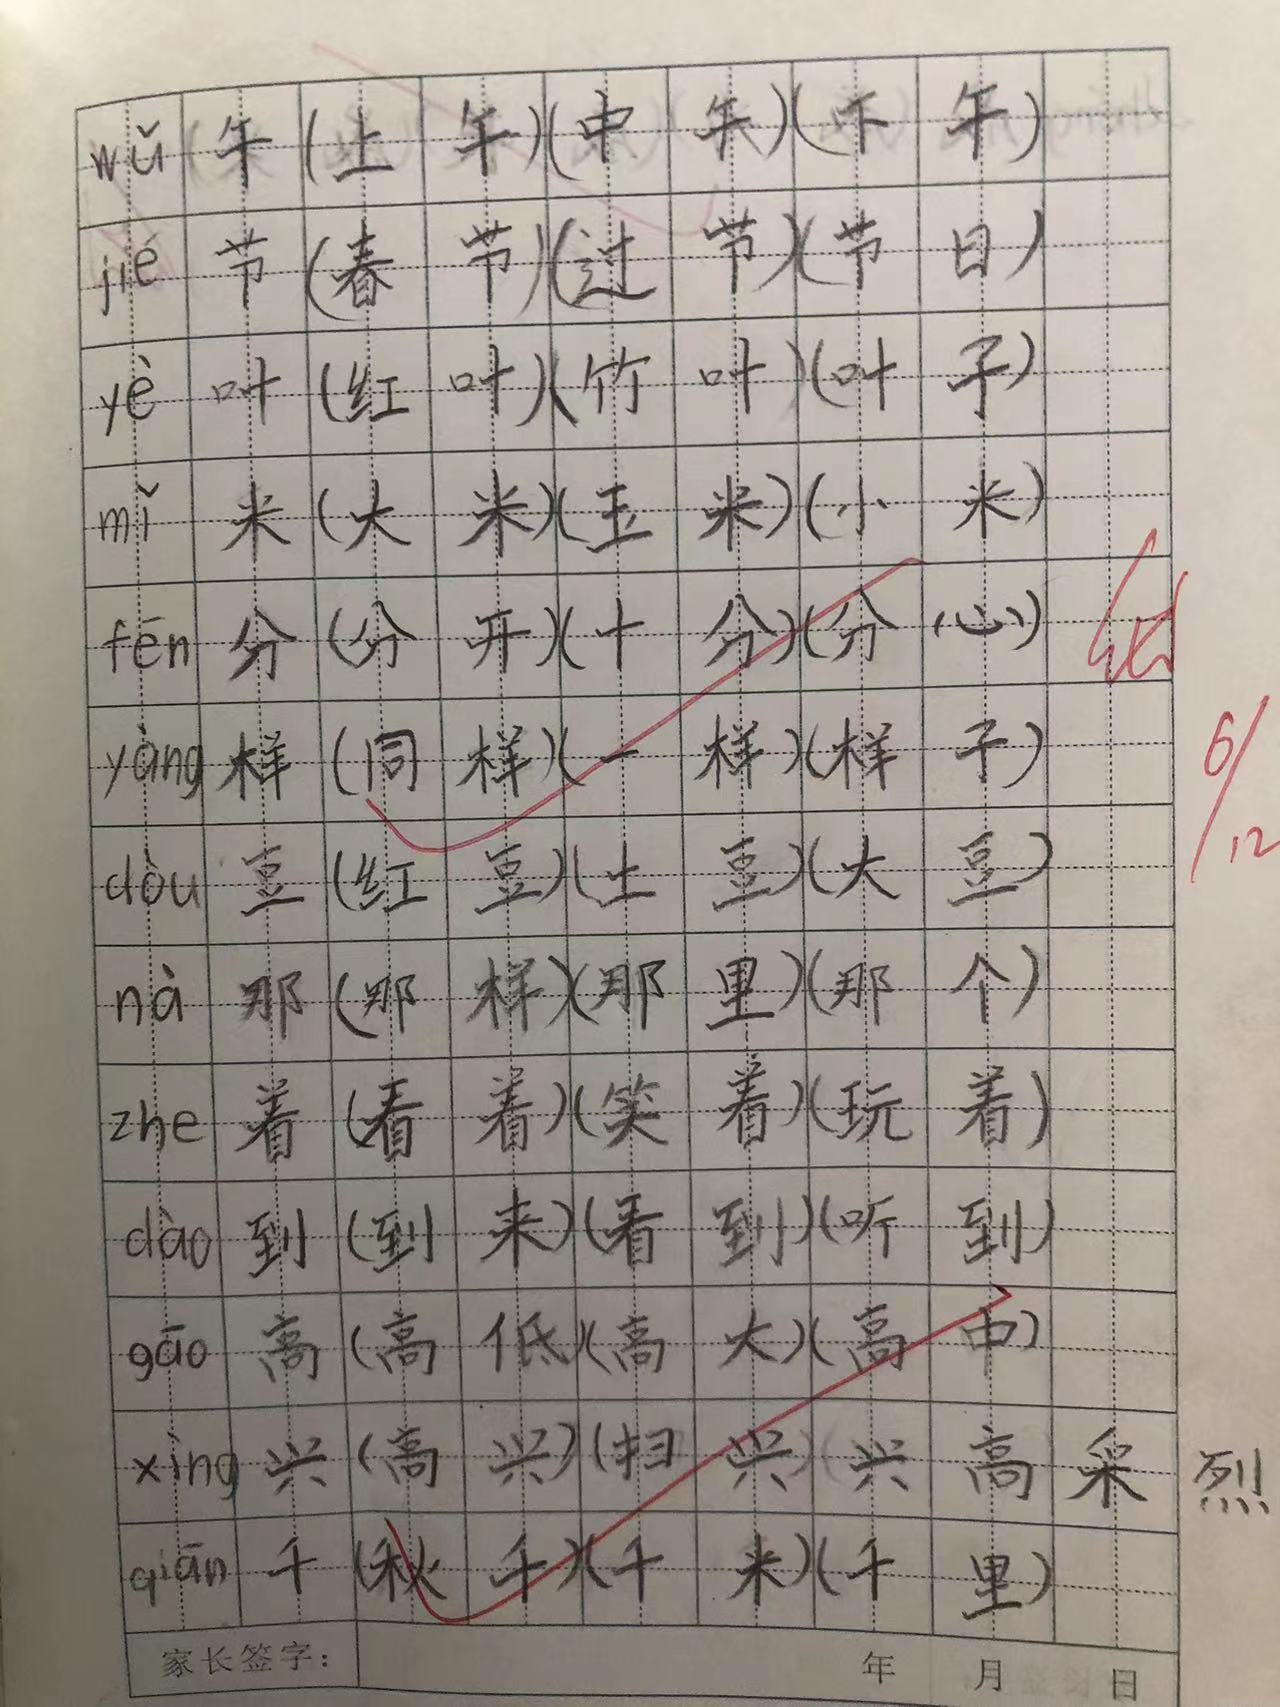 wǔ 午(上午)(中午)(下午)
jié 节(春节)(过节)(节日)
yè 叶(红叶)(竹叶)(叶子)
mǐ 米(大米)(玉米)(小米)
fēn 分(分开)(十分)(分心)
yàng 样(同样)(一样)(样子)
dòu 豆(红豆)(土豆)(大豆)
nà 那(那样)(那里)(那个)
zhe 着(看着)(笑着)(玩着)
dào 到(到来)(看到)(听到)
gāo 高(高低)(高大)(高中)
xìng 兴(高兴)(扫兴)(兴高采烈
qiān 千(秋千)(千米)(千里)
家长签字: 年 月 日
6/12